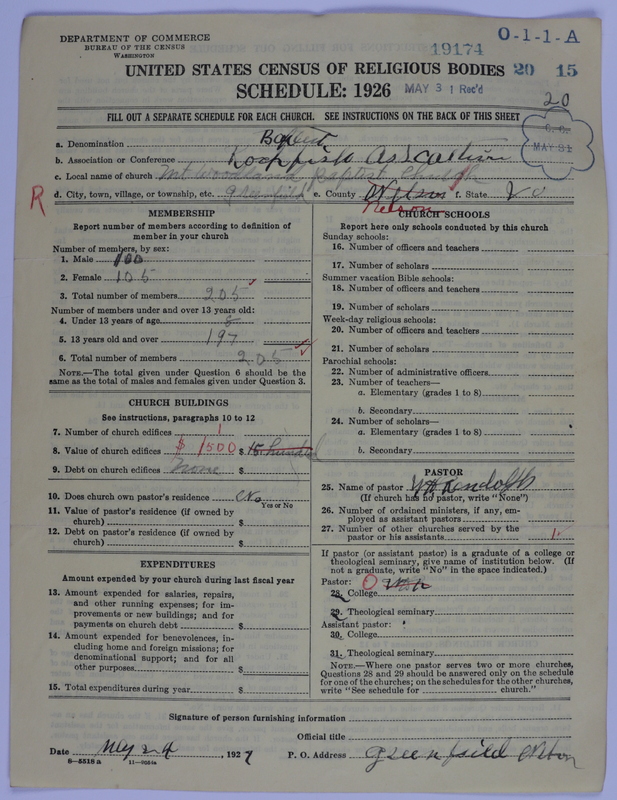 DEPARTMENT OF COMMERCE
BUREAU OF THE CENSUS
WASHINGTON
19174
O-1-1-A
UNITED STATES CENSUS OF RELIGIOUS BODIES 20 15
SCHEDULE: 1926 MAY 31 Rec'd
20
FILL OUT A SEPARATE SCHEDULE FOR EACH CHURCH. SEE INSTRUCTIONS ON THE BACK OF THIS SHEET
MAY 31
a. Denomination Baptist
b. Association or Conference
c. Local name of church Mt Woodland Baptist Church
R d. City, town, village, or township, etc. Greenfield e. County Nelson f. State
Nelson
MEMBERSHIP
Report number of members according to definition of
member in your church
Number of members, by sex:
1. Male 100
2. Female 105
3. Total number of members 205
Number of members under and over 13 years old:
4. Under 13 years of age 8
5. 13 years old and over 197
6. Total number of members 205
NOTE.—The total given under Question 6 should be the
same as the total of males and females given under Question 3.
CHURCH BUILDINGS
See instructions, paragraphs 10 to 12
7. Number of church edifices 1
8. Value of church edifices $1500 $ 15 hundred
9. Debt on church edifices none $
10. Does church own pastor's residence No
Yes or No
11. Value of pastor's residence (if owned by
church) $
12. Debt on pastor's residence (if owned by
church) $
EXPENDITURES
Amount expended by your church during last fiscal year
13. Amount expended for salaries, repairs,
and other running expenses; for im-
provements or new buildings; and for
payments on church debt $
14. Amount expended for benevolences, in-
cluding home and foreign missions; for
denominational support; and for all
other purposes $
15. Total expenditures during year $
CHURCH SCHOOLS
Report here only schools conducted by this church
Sunday schools:
16. Number of officers and teachers
17. Number of scholars
Summer vacation Bible schools:
18. Number of officers and teachers
19. Number of scholars
Week-day religious schools:
20. Number of officers and teachers
21. Number of scholars
Parochial schools:
22. Number of administrative officers
23. Number of teachers—
a. Elementary (grades 1 to 8)
b. Secondary
24. Number of scholars—
a. Elementary (grades 1 to 8)
b. Secondary
PASTOR
25. Name of pastor
(If church has no pastor, write "None")
26. Number of ordained ministers, if any, em-
ployed as assistant pastors
27. Number of other churches served by the
pastor or his assistants 1
If pastor (or assistant pastor) is a graduate of a college or
theological seminary, give name of institution below. (If
not a graduate, write "No" in the space indicated.)
Pastor: O
28. College
29. Theological seminary
Assistant pastor:
30. College
31. Theological seminary
NOTE.—Where one pastor serves two or more churches,
Questions 28 and 29 should be answered only on the schedule
for one of the churches; on the schedules for the other churches,
write "See schedule for church."
Signature of person furnishing information
Official title
Date May , 1927 P. O. Address Greenfield Nelson
8—5518 a